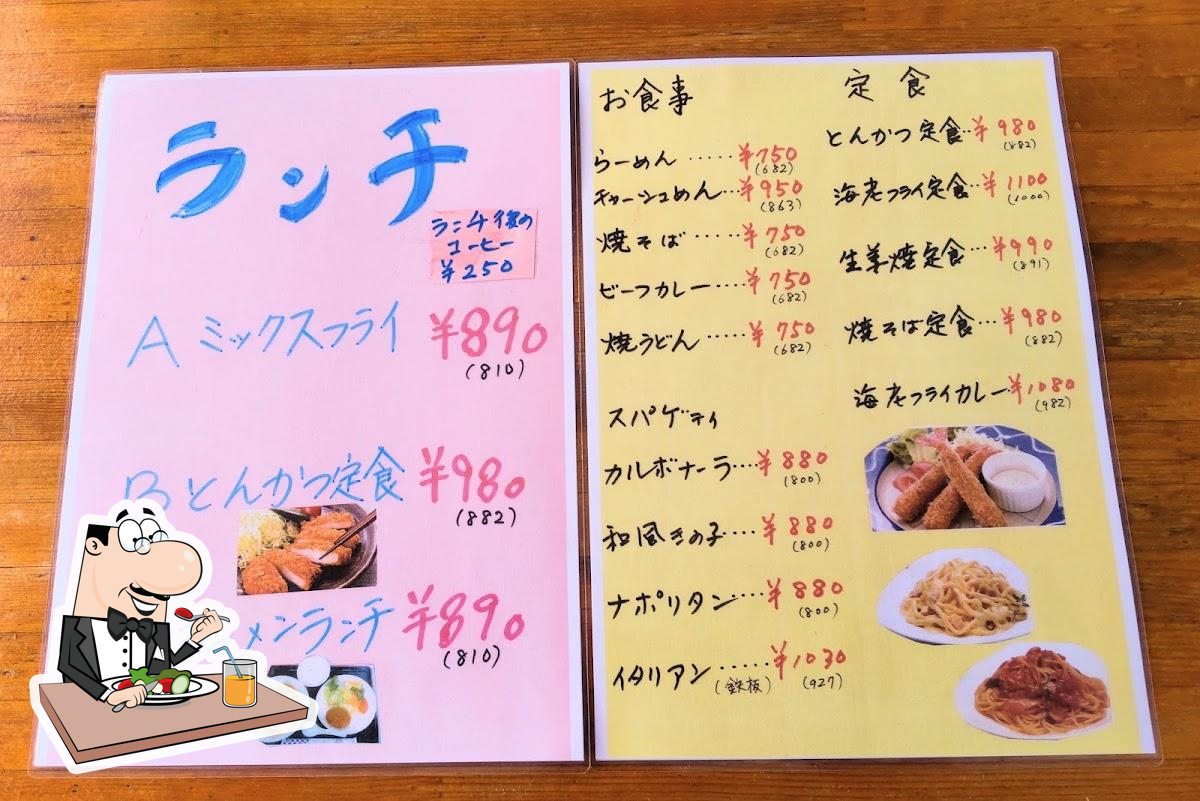 ランチ
ランチ後の
コーヒー
¥250
A ミックスフライ ¥890
(810)
B とんかつ定食 ¥980
(882)
メンランチ ¥890
(810)
お食事
らーめん ····· ¥750
(682)
チャーシューめん ··· ¥950
(863)
焼そば ····· ¥750
(682)
ビーフカレー ···· ¥750
(682)
焼うどん ····· ¥750
(682)
スパゲティ
カルボナーラ ··· ¥880
(800)
和風きの子 ···· ¥880
(800)
ナポリタン ···· ¥880
(800)
イタリアン ····· ¥1030
(鉄板) (927)
定食
とんかつ定食 ·· ¥980
(882)
海老フライ定食 ·· ¥1100
(1000)
生姜焼定食 ··· ¥990
(891)
焼そば定食 ··· ¥980
(882)
海老フライカレー ·· ¥1080
(982)